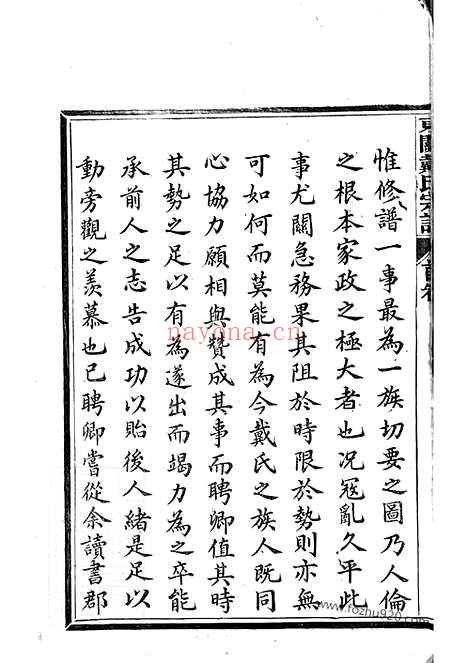 東關戴氏宗譜
首卷
惟修譜一事最為一族切要之圖乃人倫
之根本家政之極大者也況寇亂久平此
事尤關急務果其阻於時限於勢則亦無
可如何而莫能有為今戴氏之族人既同
心協力願相與贊成其事而聘卿值其時
其勢之足以有為遂出而竭力為之卒能
承前人之志告成功以貽後人緒是足以
動旁觀之羨慕也已聘卿嘗從余讀書郡
nayona.cn
www.fozhu920.com